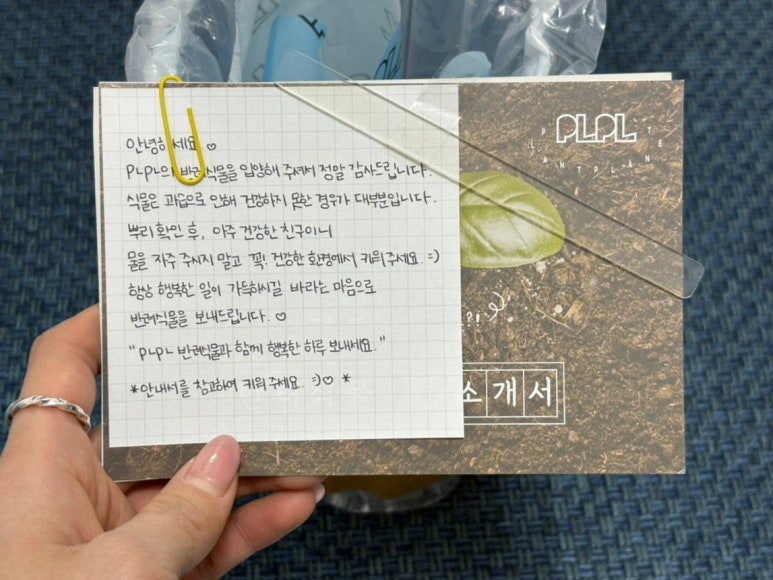 안녕하세요. ♡
PLPL의 반려식물을 입양해 주셔서 정말 감사드립니다.
식물은 과습으로 인해 건강하지 못한 경우가 대부분입니다.
뿌리 확인 후, 아주 건강한 친구이니
물을 자주 주시지 말고 꼭! 건강한 환경에서 키워 주세요. =)
항상 행복한 일이 가득하시길 바라는 마음으로
반려식물을 보내드립니다. ♡
"PLPL 반려식물과 함께 행복한 하루 보내세요."
*안내서를 참고하여 키워 주세요. =)♡ *
PLPL
P L A N T P L A N E T
?!
소개서